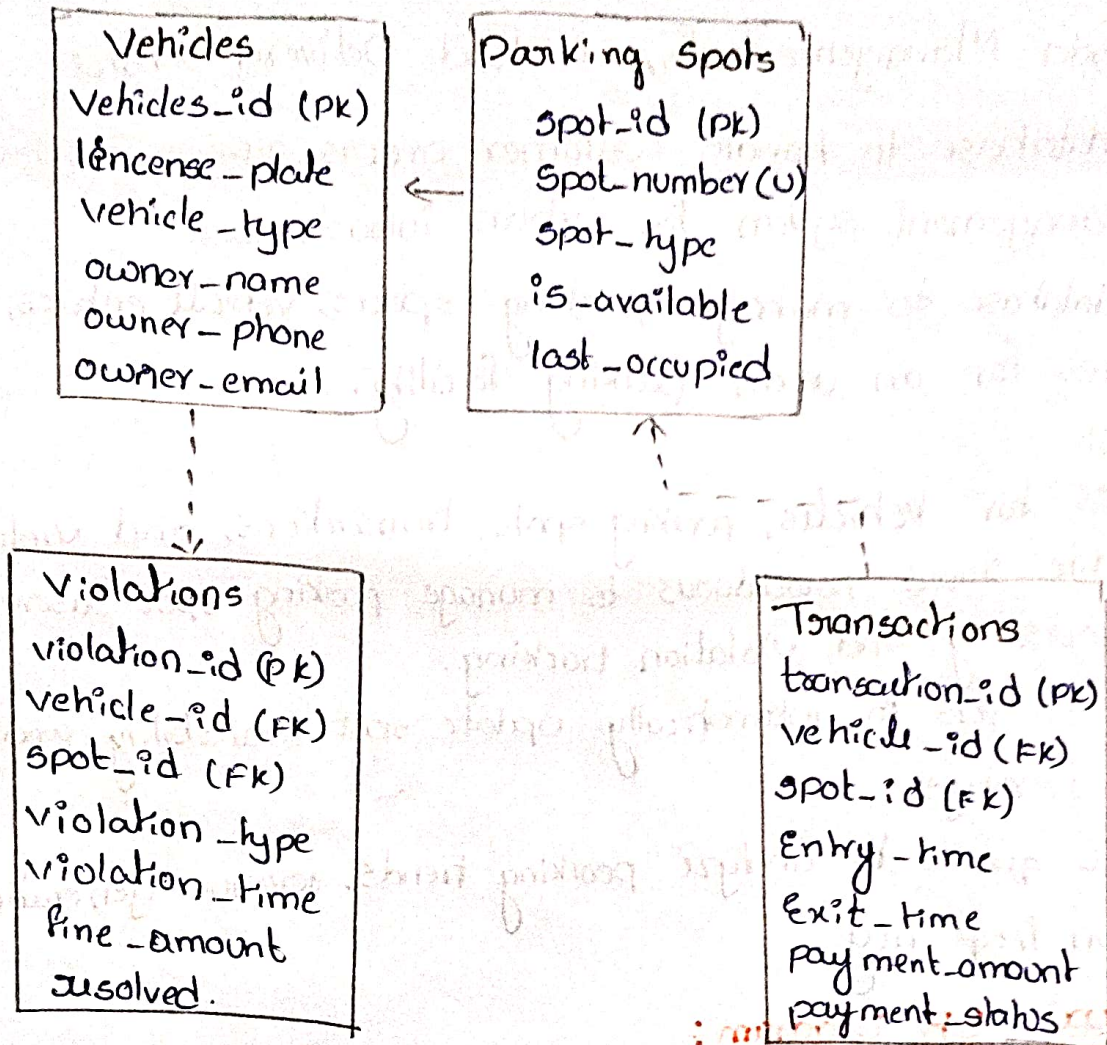 Vehicles
Vehicles_id (PK)
lencense_plate
vehicle_type
owner_name
owner_phone
owner_email
Parking Spots
spot_id (PK)
Spot_number (U)
spot_type
is_available
last_occupied
Violations
violation_id (PK)
vehicle_id (FK)
spot_id (FK)
violation_type
violation_time
fine_amount
resolved.
Transactions
transaction_id (PK)
vehicle_id (FK)
spot_id (FK)
Entry_time
Exit_time
payment_amount
payment_status